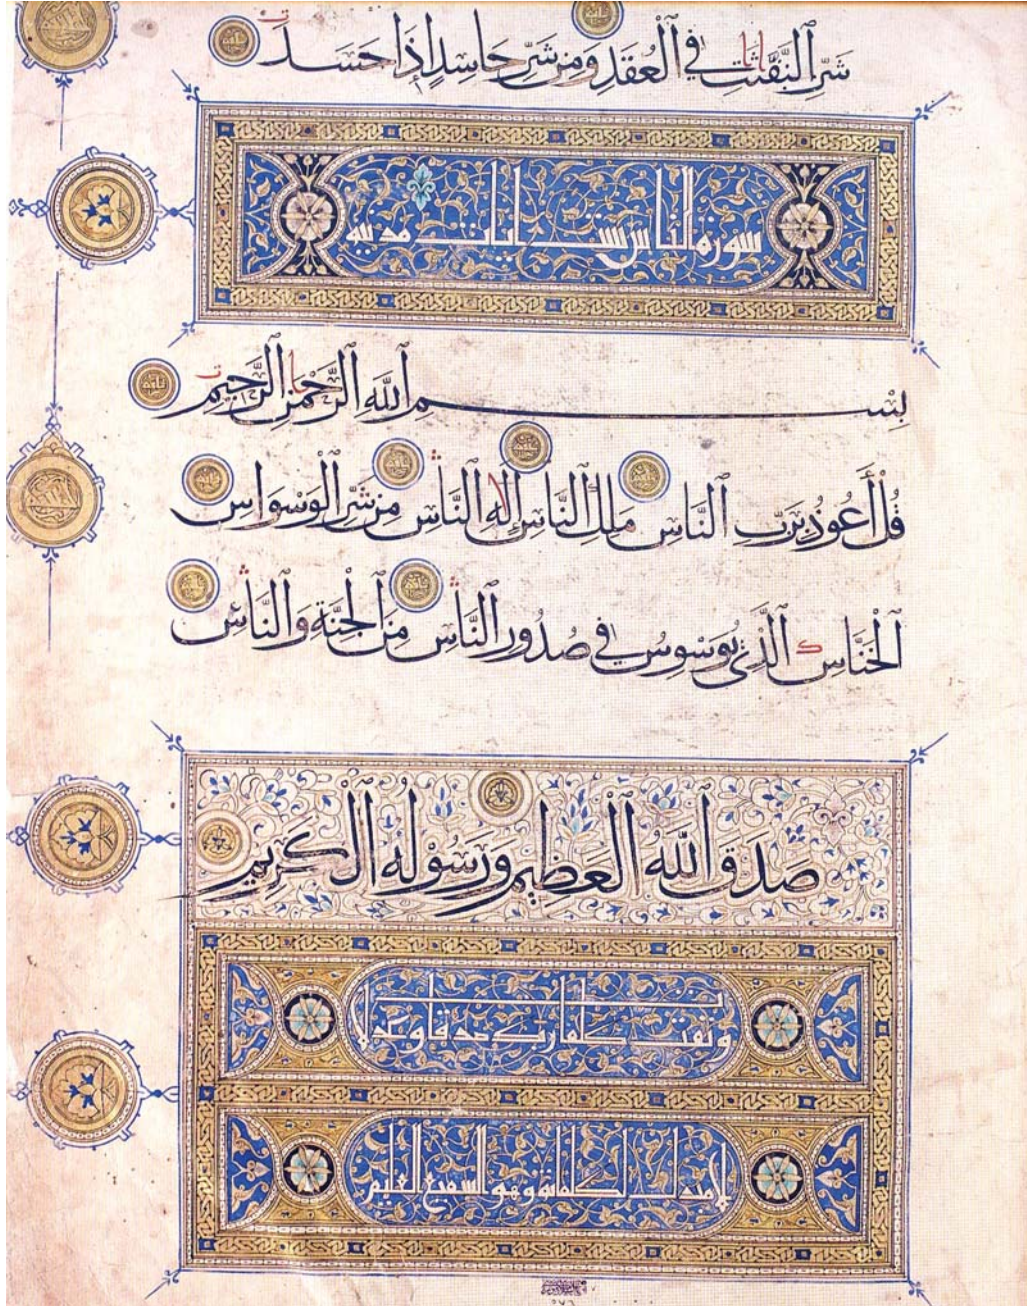 شَرِّ ٱلنَّفَّٰثَٰتِ فِي ٱلْعُقَدِ وَمِن شَرِّ حَاسِدٍ إِذَا حَسَدَ
سورة الناس ست ايات مدنية
بِسْمِ ٱللَّهِ ٱلرَّحْمَٰنِ ٱلرَّحِيمِ
قُلْ أَعُوذُ بِرَبِّ ٱلنَّاسِ مَلِكِ ٱلنَّاسِ إِلَٰهِ ٱلنَّاسِ مِن شَرِّ ٱلْوَسْوَاسِ
ٱلْخَنَّاسِ ٱلَّذِي يُوَسْوِسُ فِي صُدُورِ ٱلنَّاسِ مِنَ ٱلْجِنَّةِ وَٱلنَّاسِ
صَدَقَ ٱللَّهُ ٱلْعَظِيمُ وَرَسُولُهُ ٱلْكَرِيمُ
وتمت كلمات ربك صدقا وعدلا
لا مبدل لكلماته وهو السميع العليم